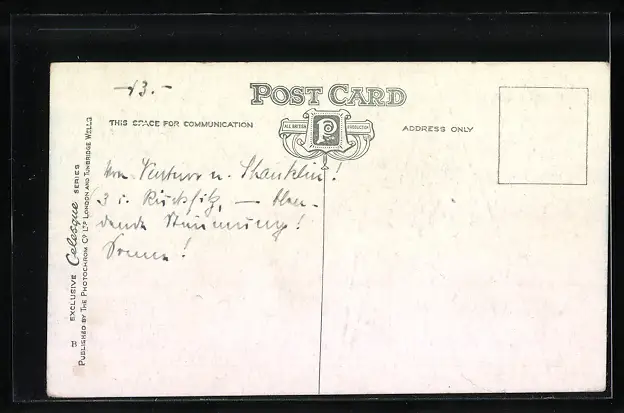 -13.-
POST CARD
THIS SPACE FOR COMMUNICATION
ALL BRITISH
P
PRODUCTION
ADDRESS ONLY
von Ventnor n. Shanklin!
3 i. Rücksitz, — Blen-
dende Stimmung!
Sonne!
B EXCLUSIVE Celesque SERIES
PUBLISHED BY THE PHOTOCHROM CO LTD LONDON AND TUNBRIDGE WELLS